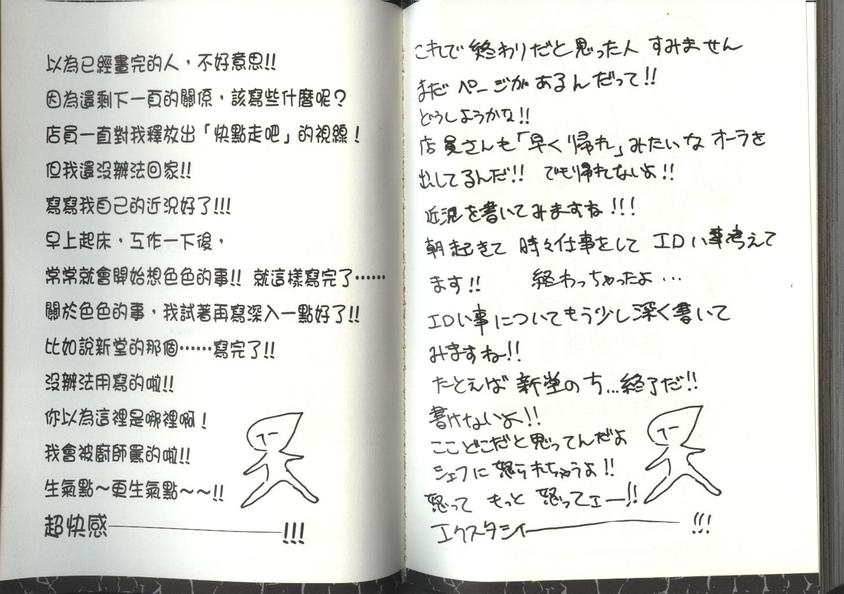 以為已經畫完的人，不好意思!!
因為還剩下一頁的關係，該寫些什麼呢？
店員一直對我釋放出「快點走吧」的視線！
但我還沒辦法回家!!
寫寫我自己的近況好了!!!
早上起床，工作一下後，
常常就會開始想色色的事!! 就這樣寫完了……
關於色色的事，我試著再寫深入一點好了!!
比如說新堂的那個……寫完了!!
沒辦法用寫的啦!!
你以為這裡是哪裡啊！
我會被廚師罵的啦!!
生氣點～更生氣點～～!!
超快感———!!!
これで 終わりだと思った人 すみません
まだ ページがあるんだって!!
どうしようかな!!
店員さんも「早く帰れ」みたいな オーラを
出してるんだ!! でも帰れないよ!!
近況を書いてみますね!!!
朝起きて 時々仕事をして エロい事考えて
ます!! 終わっちゃったよ…
エロい事についてもう少し深く書いて
みますね!!
たとえば 新堂のち…終了だ!!
書けないよ!!
ここどこだと思ってんだよ
シェフに怒られちゃうよ!!
怒って もっと 怒ってェー!!
エクスタシィ———!!!